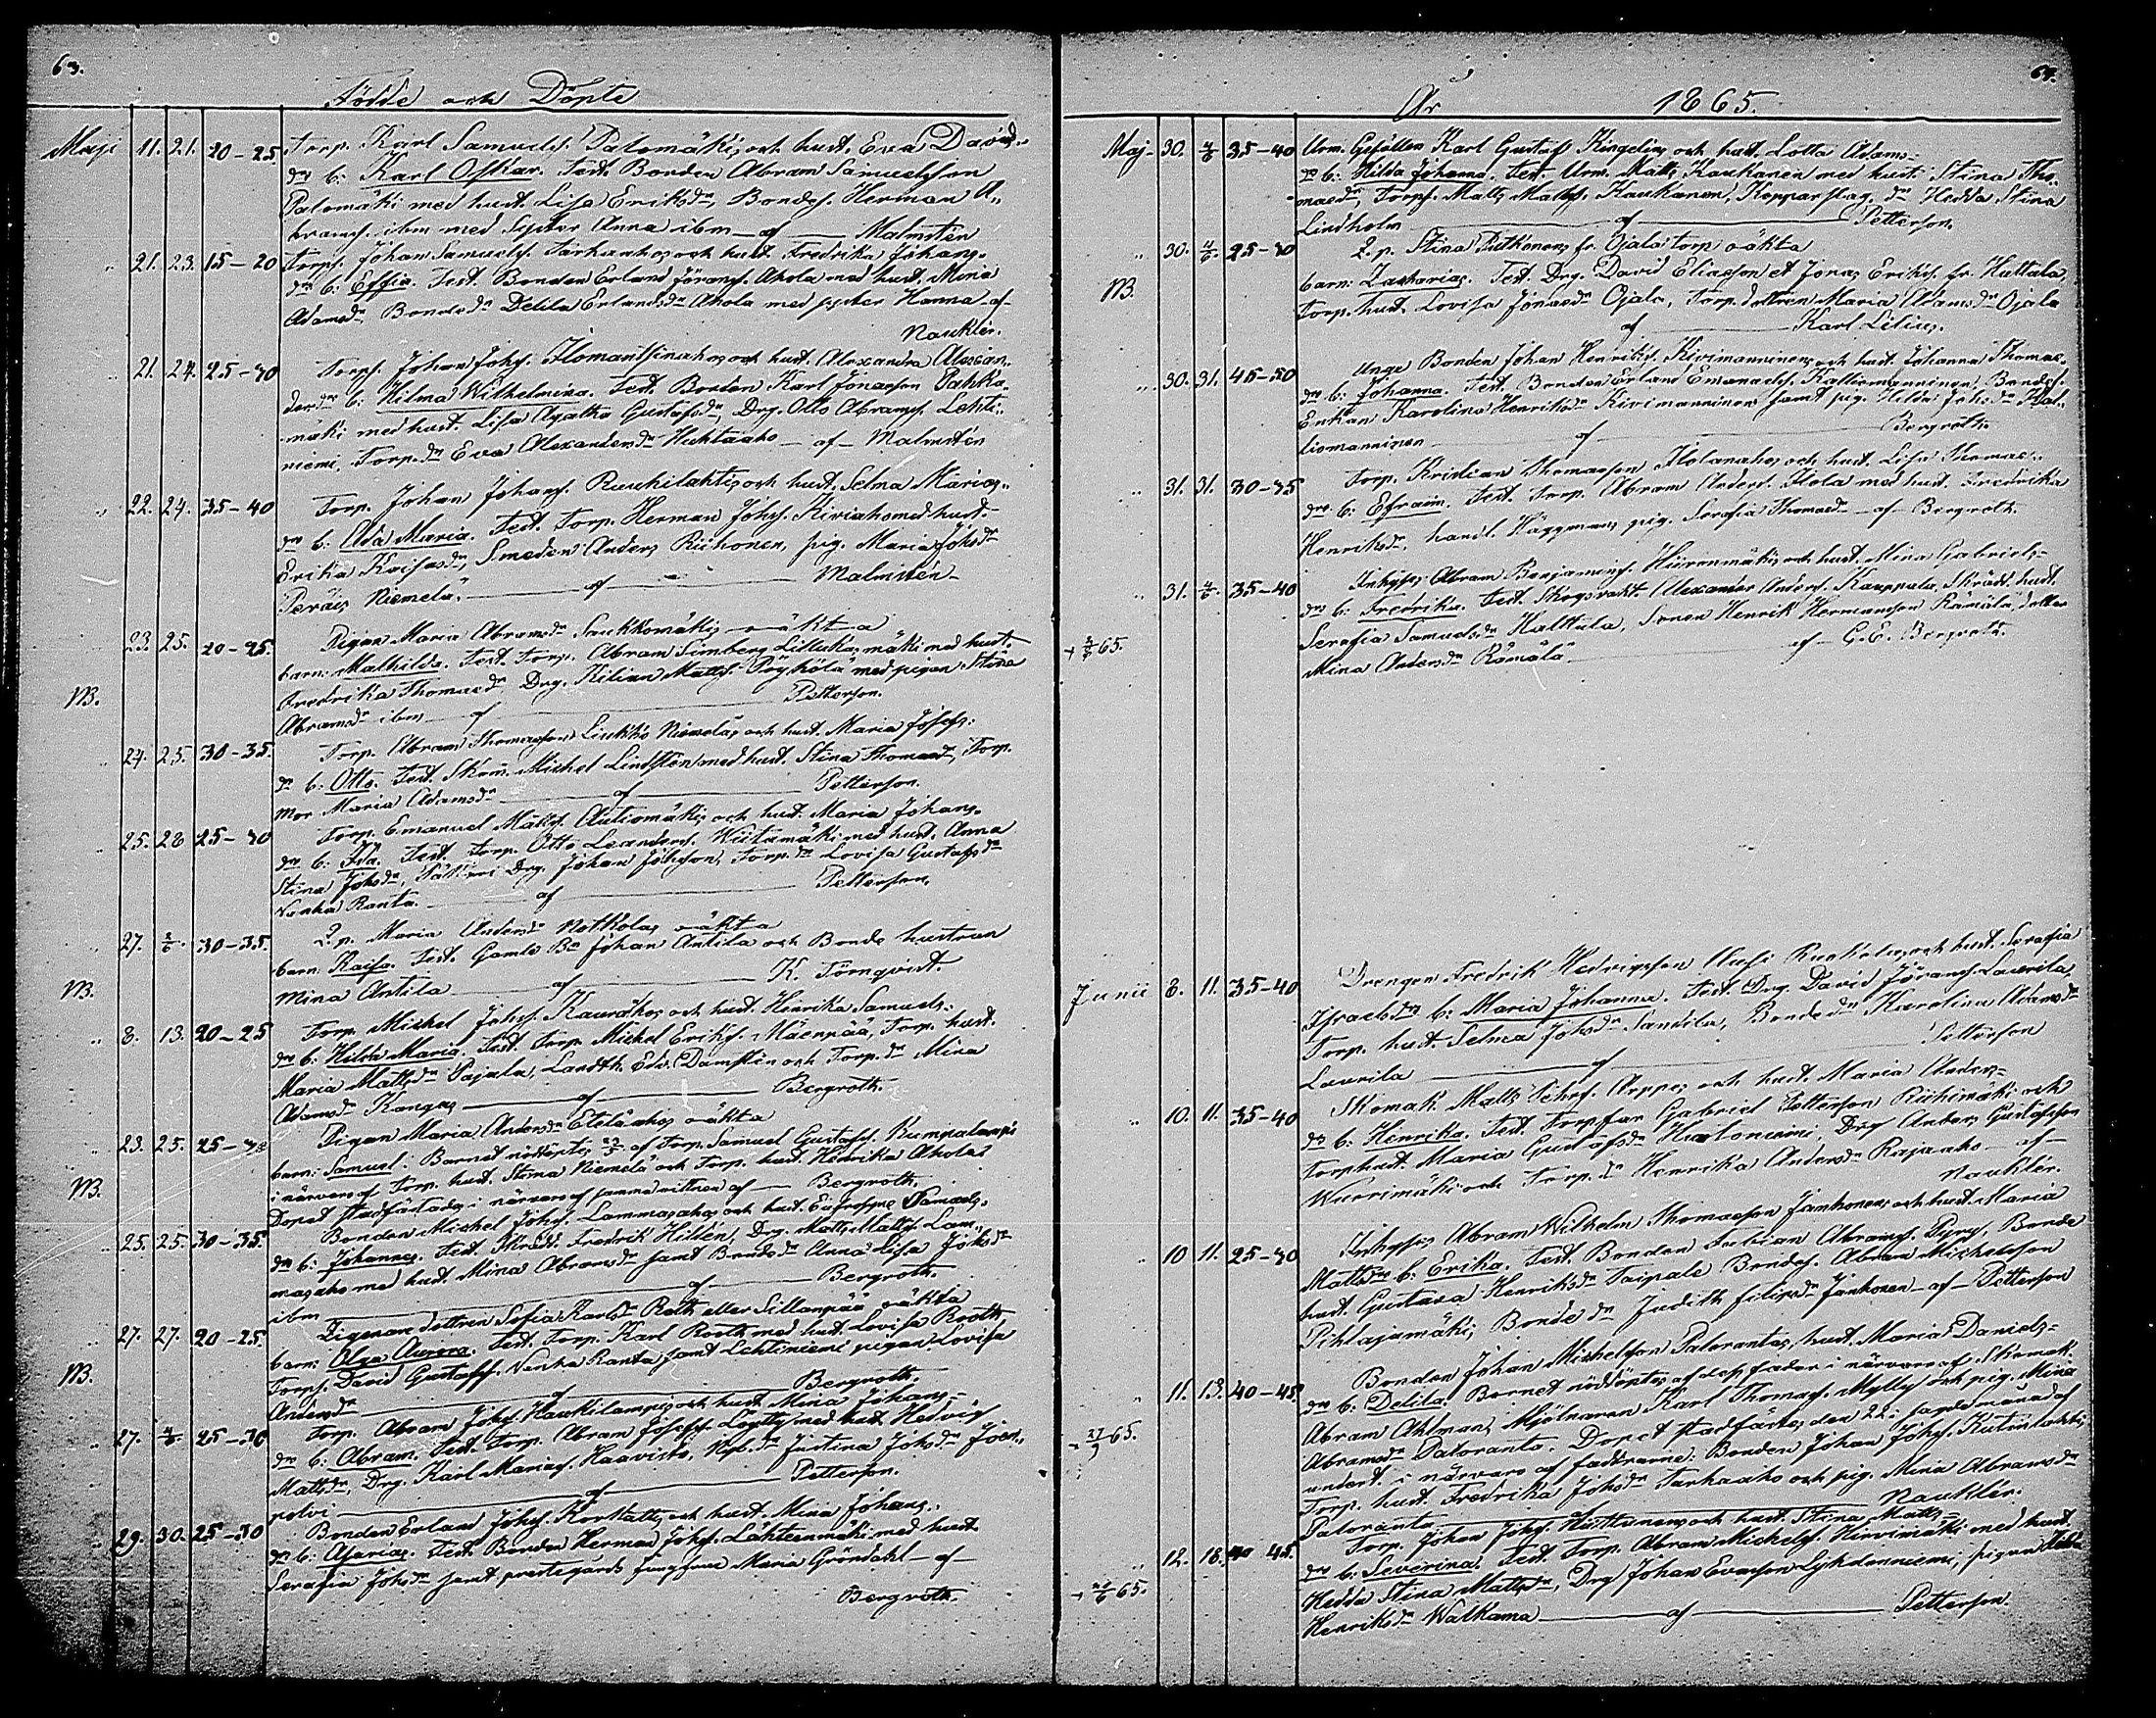 63.
Födde och Döpte
Maji 11. 21. 20-25 Torp. Karl Samuels. Palomäki, och hust. Eva David..
dr b: Karl Oskar. Test. Bonden Abram Samuelsson
Palomäki med hust. Lisa Eriksdr, Bondes. Herman A..
brams. ibm med Syster Anna ibm — af — Malmstén
" 21. 23. 15-20 Torps. Johan Samuels. Tarhanho, och hust. Fredrika Johans-
dr b: Effia. Test. Bonden Erland Jörans. Ahola med hust. Mina
Adamsdr, Bondedr Delila Erlandsdr Ahola med syster Hanna af
Nauklér.
" 21. 24. 25-30 Torps. Johan Johs. Ilomantsinaho, och hust. Alexandra Alexan..
dersdr b: Hilma Wilhelmina. Test. Bonden Karl Jonasson Pahka..
mäki med hust. Lisa Agatha Gustafsdr, Drg. Otto Abrams. Lehti..
niemi, Torp.dr Eva Alexandersdr Huhtaaho — af — Malmstén
" 22. 24. 35-40 Torp. Johan Johans. Ruuhilahti, och hust. Selma Maria..
dr b: Ada Maria. Test. Torp. Herman Johs. Kiviaho med hust.
Erika Kaisasdr, Smeden Anders Riihonen, pig. Maria Johsdr
Peräis Niemelä. — af — Malmstén
23. 25. 20-25. Pigan Maria Abramsdr Saukkomäki, oäkta
barn: Mathilda. Test. Torp. Abram Simberg Lillukamäki med hust.
Fredrika Thomasdr Drg. Kilian Matts. Pöyhölä med pigan Stina
NB.
Abramsdr ibm — af — Petterson.
" 24. 25. 30-35. Torp. Abram Thomasson Liukko Niemelä, och hust. Maria Josefs:
dr b: Otto. Test. Skom. Michel Lindstén med hust. Stina Thomasdr, Torp.
mor Maria Adamsdr — af — Petterson.
" 25. 28 25-30 Torp. Emanuel Matts. Autiomäki, och hust. Maria Johans.
dr b: Ida. Test. Torp. Otto Leanders. Wiitamäki med hust. Anna
Stina Johsdr, Drg. Johan Johsson, Torp.dr Lovisa Gustafsdr
Vanha Ranta. — af — Petterson.
" 27. 2/6. 30-35. L.p. Maria Andersdr Notkola, oäkta
barn: Kaisa. Test. Gamle Bn Johan Antila och Bonde hustrun
NB. Mina Antila — af — K. Törnqvist.
" 8. 13. 20-25 Torp. Michel Johs. Kauraho, och hust. Henrika Samuels-
dr b: Hilda Maria. Test. Torp. Michel Eriks. Mäenpää, Torp. hust.
Maria Mattsdr Pajala, Landth. Edv. Damstén och Torp.dr Mina
Adamsdr Kangas — af — Bergroth.
" 23. 25. 25-30 Pigan Maria Andersdr Eteläaho, oäkta
barn: Samuel. Barnet nöddöptes 23/5 af Torp. Samuel Gustafss. Kumpulampi
NB. i närvaro af Torp. hust. Stina Niemelä och Torp. hust. Henrika Ahola.
Dopet stadfästades i närvaro af samma vittnen af — Bergroth.
" 25. 25. 30-35. Bonden Michel Johs. Lammasaho, och hust. Eufrosyne Samuels-
dr b: Johannes. Test. Skrädd. Fredrik Hildén, Drg. Matts Matts. Lam-
masaho med hust. Mina Abramsdr samt Bondedr Anna Lisa Johsdr
ibm — af — Bergroth.
" 27. 27. 20-25. Zigenare dottren Sofia Karlsdr Roth eller Sillanpää oäkta
barn: Olga Aurora. Test. Torp. Karl Rooth med hust. Lovisa Rooth,
NB. Torps. David Gustafss. Vanha Ranta samt Lehtiniemi pigan Lovisa
Andersdr — af — Bergroth.
" 27. 4/6. 25-30 Torp. Abram Johs. Haukilampi, och hust. Mina Johans-
dr b: Abram. Test. Torp. Abram Josefss. Löytty med hust. Hedvig
Mattsdr, Drg. Karl Marias. Haavisto, Np.dr Justina Johsdr Joen..
polvi — af — Petterson.
29. 30. 25-30 Bonden Erland Johs. Korkatti, och hust. Mina Johans..
dr b: Asarias. Test. Bonden Herman Johs. Lähteenmäki med hust.
Serafia Johsdr samt prestegårds jungfrun Maria Gröndahl — af —
Bergroth.
64.
År 1865.
Maj- 30. 4/6 35-40 Urm. Gesällen Karl Gustaf Kingelin, och hust. Lotta Adams-
dr b: Hilda Johanna. Test. Urm. Matts Kaukonen med hust. Stina Tho..
masdr, Torps. Matts Matts. Kaukonen, Kopparslag.dr Hedda Stina
Lindholm — af — Petterson.
" 30. 4/6. 25-30 L.p. Stina Putkonen, fr. Ojala torp oäkta
NB. barn: Zacharias. Test. Drg. David Eliasson et Jonas Eriks. fr. Huttula,
Torp. hust. Lovisa Jonasdr Ojala, Torp. dottren Maria Adamsdr Ojala
af — Karl Lilius.
" 30. 31. 45-50 Unge Bonden Johan Henriks. Kivimanninen, och hust. Johanna Thomas-
dr b: Johanna. Test. Bonden Erland Emanuels. Kalliomanninen, Bondes.
Enkan Karolina Henriksdr Kivimanninen samt pig. Hilda Johsdr Kal..
liomanninen — af — Bergroth.
" 31. 31. 30-35 Torp. Kristian Thomasson Kolanaho, och hust. Lisa Thomas..
dr b: Efraim. Test. Torp. Abram Anders. Kola med hust. Fredrika
Henriksdr, handl. Häggmans pig. Serafia Thomasdr — af — Bergroth.
" 31. 4/6. 35-40 Inhyses Abram Benjamins. Hiirenmäki, och hust. Mina Gabriels-
dr b: Fredrika. Test. Skogsvakt. Alexander Anders. Kauppala, Skrädd. hust.
Serafia Samuelsdr Halttula, Sonen Henrik Hermansson Rämälä, dotter
65.
Mina Andersdr Rämälä — af — G. E. Bergroth.
Junii 8. 11. 35-40 Drengen Fredrik Hedvigsson Uusi Ruokola, och hust. Serafia
Israelsdr b: Maria Johanna. Test. Drg. David Jörans. Laurila,
Torp. hust. Selma Johsdr Sandila, Bondedr Karolina Adamsdr
Laurila — af — Petterson
" 10. 11. 35-40 Skomak. Matts Arppe, och hust. Maria Anders-
dr b: Henrika. Test. Torpfar Gabriel Petterson Riihimäki och
Torp hust. Maria Gustafsdr Huttoniemi, Drg Anders Gustafsson
Wuorimäki och Torp.dr Henrika Andersdr Rajaaho — af —
Nauklér.
" 10 11. 25-30 Inhyses Abram Wilhelm Thomasson Jänkonen, och hust. Maria
Mattsdr b: Erika. Test. Bonden Julian Abrams. Pyry, Bonde
hust. Gustava Henriksdr Taipale Bondes. Abram Michelsson
Pihlajamäki, Bondedr Judith Filipsdr Jänkonen — af — Petterson
" 11. 13. 40-45 Bonden Johan Michelsson Paloranta, hust. Maria Daniels-
dr b: Delila. Barnet nöddöptes af dess fader i närvaro af Skomak.
Abram Ahlman, Mjölnaren Karl Thomas. Mylly och pig. Mina
27/9 65. Abramsdr Paloranta. Dopet stadfästes den 22: i samma månad af
undert. i närvaro af faddrarne: Bonden Johan Johs. Kutinlahti,
Torp. hust. Fredrika Johsdr Tarhaaho och pig. Mina Abramsdr
Paloranta — Nauklér.
" 12. 18. 40 45. Torp. Johan Johs. Huttunen, och hust. Stina Matts-
dr b: Severina. Test. Torp. Abram Michels. Hirvimäki med hust.
65. Hedda Stina Mattsdr, Drg Johan Evasson Lyhdenniemi, pigan
Henriksdr Walkama — af — Petterson.